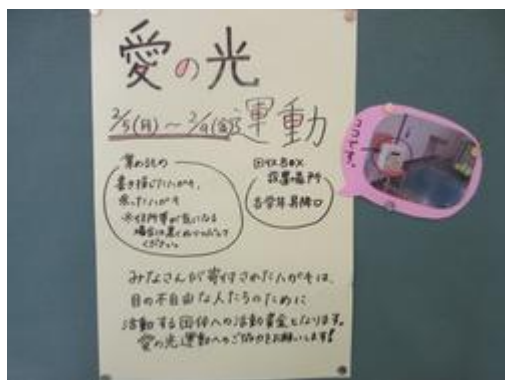 愛の光
2/5(月)～2/9(金)運動
集めるもの
書き損じたハガキ、
余ったハガキ
※住所等が気になる
場合は黒くぬりつぶして
ください。
回収BOX
設置場所
各学年昇降口
ココです。
みなさんが寄付されたハガキは、
目の不自由な人たちのために
活動する団体への活動資金となります。
愛の光運動へのご協力をお願いします!